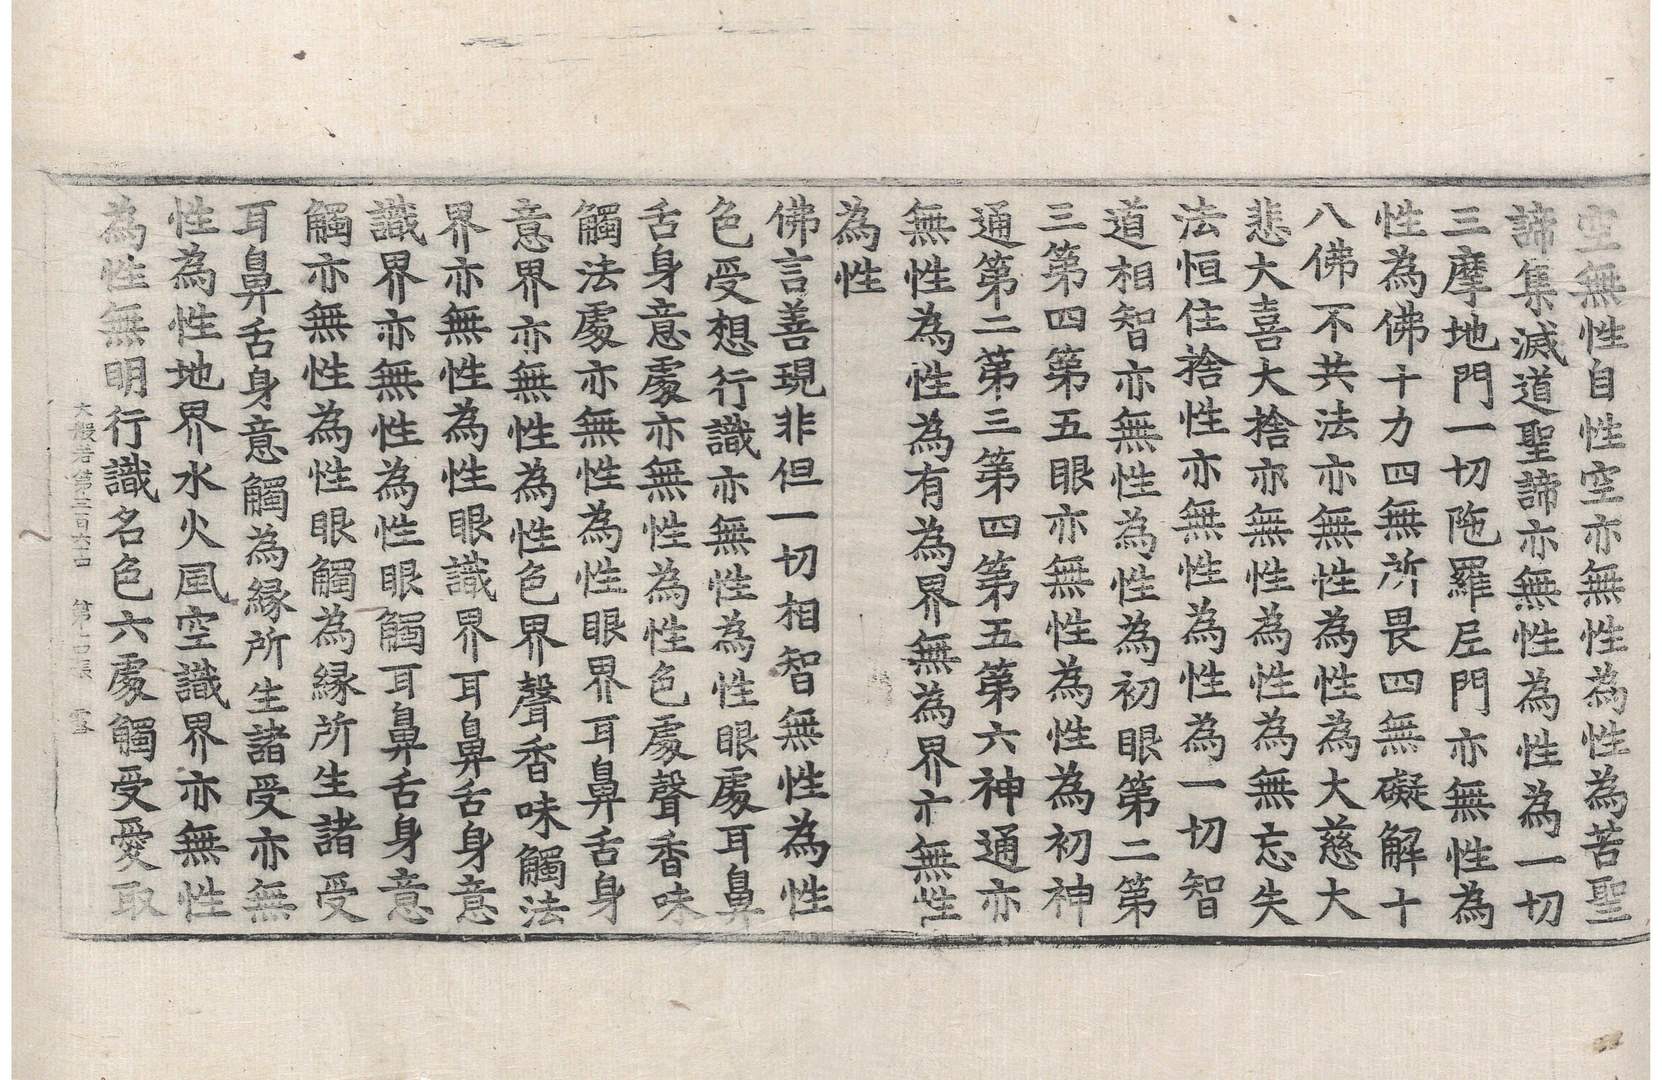 空無性自性空亦無性為性為苦聖
諦集滅道聖諦亦無性為性為一切
三摩地門一切陁羅尼門亦無性為
性為佛十力四無所畏四無礙解十
八佛不共法亦無性為性為大慈大
悲大喜大捨亦無性為性為無忘失
法恒住捨性亦無性為性為一切智
道相智亦無性為性為初眼第二第
三第四第五眼亦無性為性為初神
通第二第三第四第五第六神通亦
無性為性為有為界無為界亦無性
為性
佛言善現非但一切相智無性為性
色受想行識亦無性為性眼處耳鼻
舌身意處亦無性為性色處聲香味
觸法處亦無性為性眼界耳鼻舌身
意界亦無性為性色界聲香味觸法
界亦無性為性眼識界耳鼻舌身意
識界亦無性為性眼觸耳鼻舌身意
觸亦無性為性眼觸為縁所生諸受
耳鼻舌身意觸為縁所生諸受亦無
性為性地界水火風空識界亦無性
為性無明行識名色六處觸受愛取
大般若第三百六 第 張